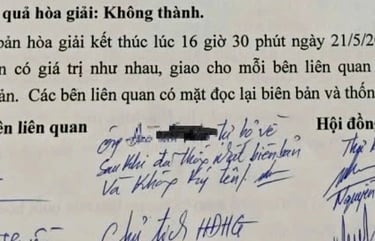 quả hòa giải: Không thành.
bản hòa giải kết thúc lúc 16 giờ 30 phút ngày 21/5/2
n có giá trị như nhau, giao cho mỗi bên liên quan
ản. Các bên liên quan có mặt đọc lại biên bản và thốn
ên liên quan
Hội đồn
ông tự bỏ về
Sau khi đã thống nhất biên bản
Và Không Ký tên/
Nguyễn
Chủ tịch HĐHG